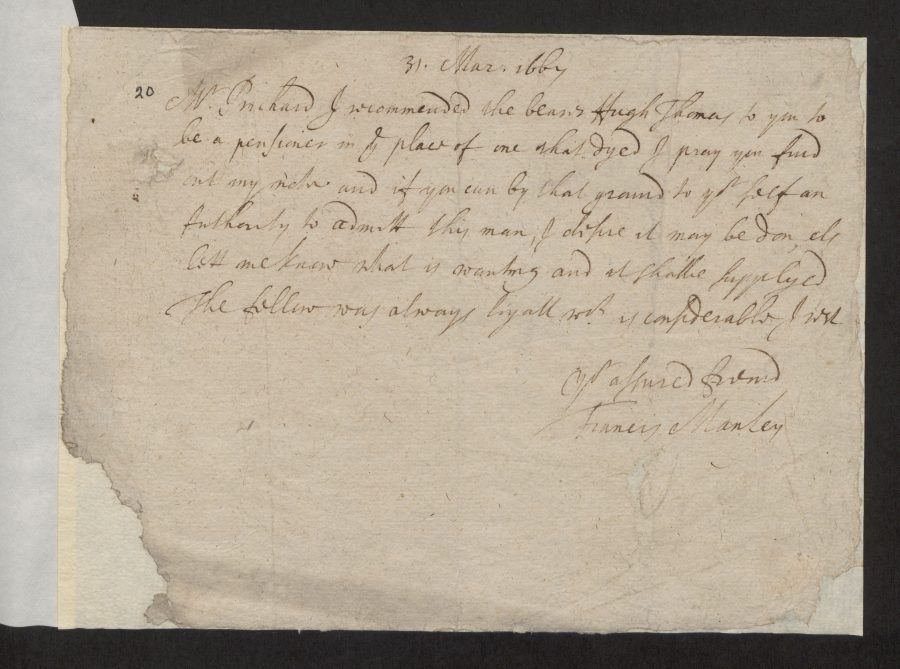 31. Mar. 1667
20
Mr Prichard I recommended the bearer Hugh Thomas to you to
be a pensioner in ye place of one that dyed I pray you find
out my note and if you can by that ground to yor self an
Authority to admitt this man, I desire it may be don, els
lett me know what is wanting and it shalbe supplyed
The fellow was always loyall wch is considerable, I rest
yor assured freind
Francis Manley